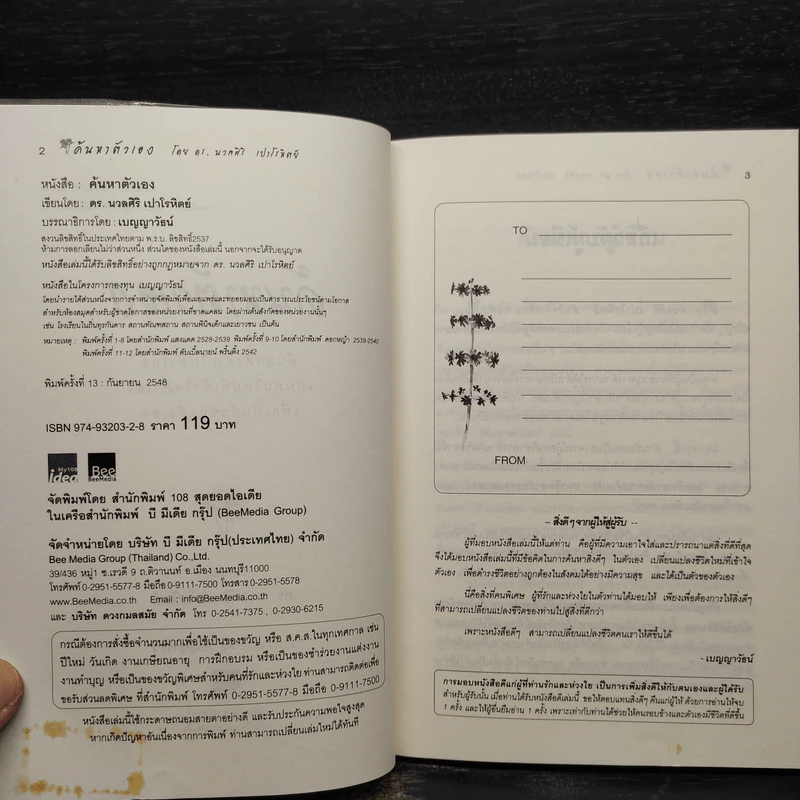 2 ค้นหาตัวเอง โดย ดร. นวลศิริ เปาโรหิตย์
หนังสือ : ค้นหาตัวเอง
เขียนโดย : ดร. นวลศิริ เปาโรหิตย์
บรรณาธิการโดย : เบญญาวัธน์
สงวนลิขสิทธิ์ในประเทศไทยตาม พ.ร.บ. ลิขสิทธิ์2537
ห้ามการลอกเลียนไม่ว่าส่วนหนึ่ง ส่วนใดของหนังสือเล่มนี้ นอกจากจะได้รับอนุญาต
หนังสือเล่มนี้ได้รับลิขสิทธิ์อย่างถูกกฎหมายจาก ดร. นวลศิริ เปาโรหิตย์
หนังสือในโครงการกองทุน เบญญาวัธน์
โดยนำรายได้ส่วนหนึ่งจากการจำหน่ายจัดพิมพ์เพื่อเผยแพร่และทยอยมอบเป็นสาธารณประโยชน์ตามโอกาส
สำหรับห้องสมุดสำหรับผู้ขาดโอกาสของหน่วยงานที่ขาดแคลน โดยผ่านต้นสังกัดของหน่วยงานนั้นๆ
เช่น โรงเรียนในถิ่นทุรกันดาร สถานทัณฑสถาน สถานพินิจเด็กและเยาวชน เป็นต้น
หมายเหตุ : พิมพ์ครั้งที่ 1-8 โดยสำนักพิมพ์ แสงแดด 2528-2539 พิมพ์ครั้งที่ 9-10 โดยสำนักพิมพ์ ดอกหญ้า 2539-2540
พิมพ์ครั้งที่ 11-12 โดยสำนักพิมพ์ ดับเบิ้ลนายน์ พริ้นติ้ง 2542
พิมพ์ครั้งที่ 13 : กันยายน 2548
ISBN 974-93203-2-8 ราคา 119 บาท
My108 idea Bee BeeMedia
จัดพิมพ์โดย สำนักพิมพ์ 108 สุดยอดไอเดีย
ในเครือสำนักพิมพ์ บี มีเดีย กรุ๊ป (BeeMedia Group)
จัดจำหน่ายโดย บริษัท บี มีเดีย กรุ๊ป(ประเทศไทย) จำกัด
Bee Media Group (Thailand) Co.,Ltd.
39/436 หมู่1 ซ.เรวดี 9 ถ.ติวานนท์ อ.เมือง นนทบุรี11000
โทรศัพท์ 0-2951-5577-8 มือถือ 0-9111-7500 โทรสาร 0-2951-5578
www.BeeMedia.co.th Email : info@BeeMedia.co.th
และ บริษัท ดวงกมลสมัย จำกัด โทร 0-2541-7375 , 0-2930-6215
กรณีต้องการสั่งซื้อจำนวนมากเพื่อใช้เป็นของขวัญ หรือ ส.ค.ส.ในทุกเทศกาล เช่น
ปีใหม่ วันเกิด งานเกษียณอายุ การฝึกอบรม หรือเป็นของชำร่วยงานแต่งงาน
งานทำบุญ หรือเป็นของขวัญพิเศษสำหรับคนที่รักและห่วงใย ท่านสามารถติดต่อเพื่อ
ขอรับส่วนลดพิเศษ ที่สำนักพิมพ์ โทรศัพท์ 0-2951-5577-8 มือถือ 0-9111-7500
หนังสือเล่มนี้ใช้กระดาษถนอมสายตาอย่างดี และรับประกันความพอใจสูงสุด
หากเกิดปัญหาอันเนื่องจากการพิมพ์ ท่านสามารถเปลี่ยนเล่มใหม่ได้ทันที
3
TO
FROM
– สิ่งดีๆจากผู้ให้สู่ผู้รับ --
ผู้ที่มอบหนังสือเล่มนี้ให้แด่ท่าน คือผู้ที่มีความเอาใจใส่และปรารถนาแต่สิ่งที่ดีที่สุด
จึงได้มอบหนังสือเล่มนี้ที่มีข้อคิดในการค้นหาสิ่งดีๆ ในตัวเอง เปลี่ยนแปลงชีวิตใหม่ที่เข้าใจ
ตัวเอง เพื่อดำรงชีวิตอย่างถูกต้องในสังคมได้อย่างมีความสุข และได้เป็นตัวของตัวเอง
นี่คือสิ่งที่คนพิเศษ ผู้ที่รักและห่วงใยในตัวท่านได้มอบให้ เพียงเพื่อต้องการให้สิ่งดีๆ
ที่สามารถเปลี่ยนแปลงชีวิตของท่านไปสู่สิ่งที่ดีกว่า
เพราะหนังสือดีๆ สามารถเปลี่ยนแปลงชีวิตคนเราให้ดีขึ้นได้
- เบญญาวัธน์
การมอบหนังสือดีแก่ผู้ที่ท่านรักและห่วงใย เป็นการเพิ่มสิ่งดีให้กับตนเองและผู้ได้รับ
สำหรับผู้รับนั้น เมื่อท่านได้รับหนังสือดีเล่มนี้ ขอให้ตอบแทนสิ่งดีๆ คืนแก่ผู้ให้ ด้วยการอ่านให้จบ
1 ครั้ง และให้ผู้อื่นยืมอ่าน 1 ครั้ง เพราะเท่ากับท่านได้ช่วยให้คนรอบข้างและตัวเองมีชีวิตที่ดีขึ้น